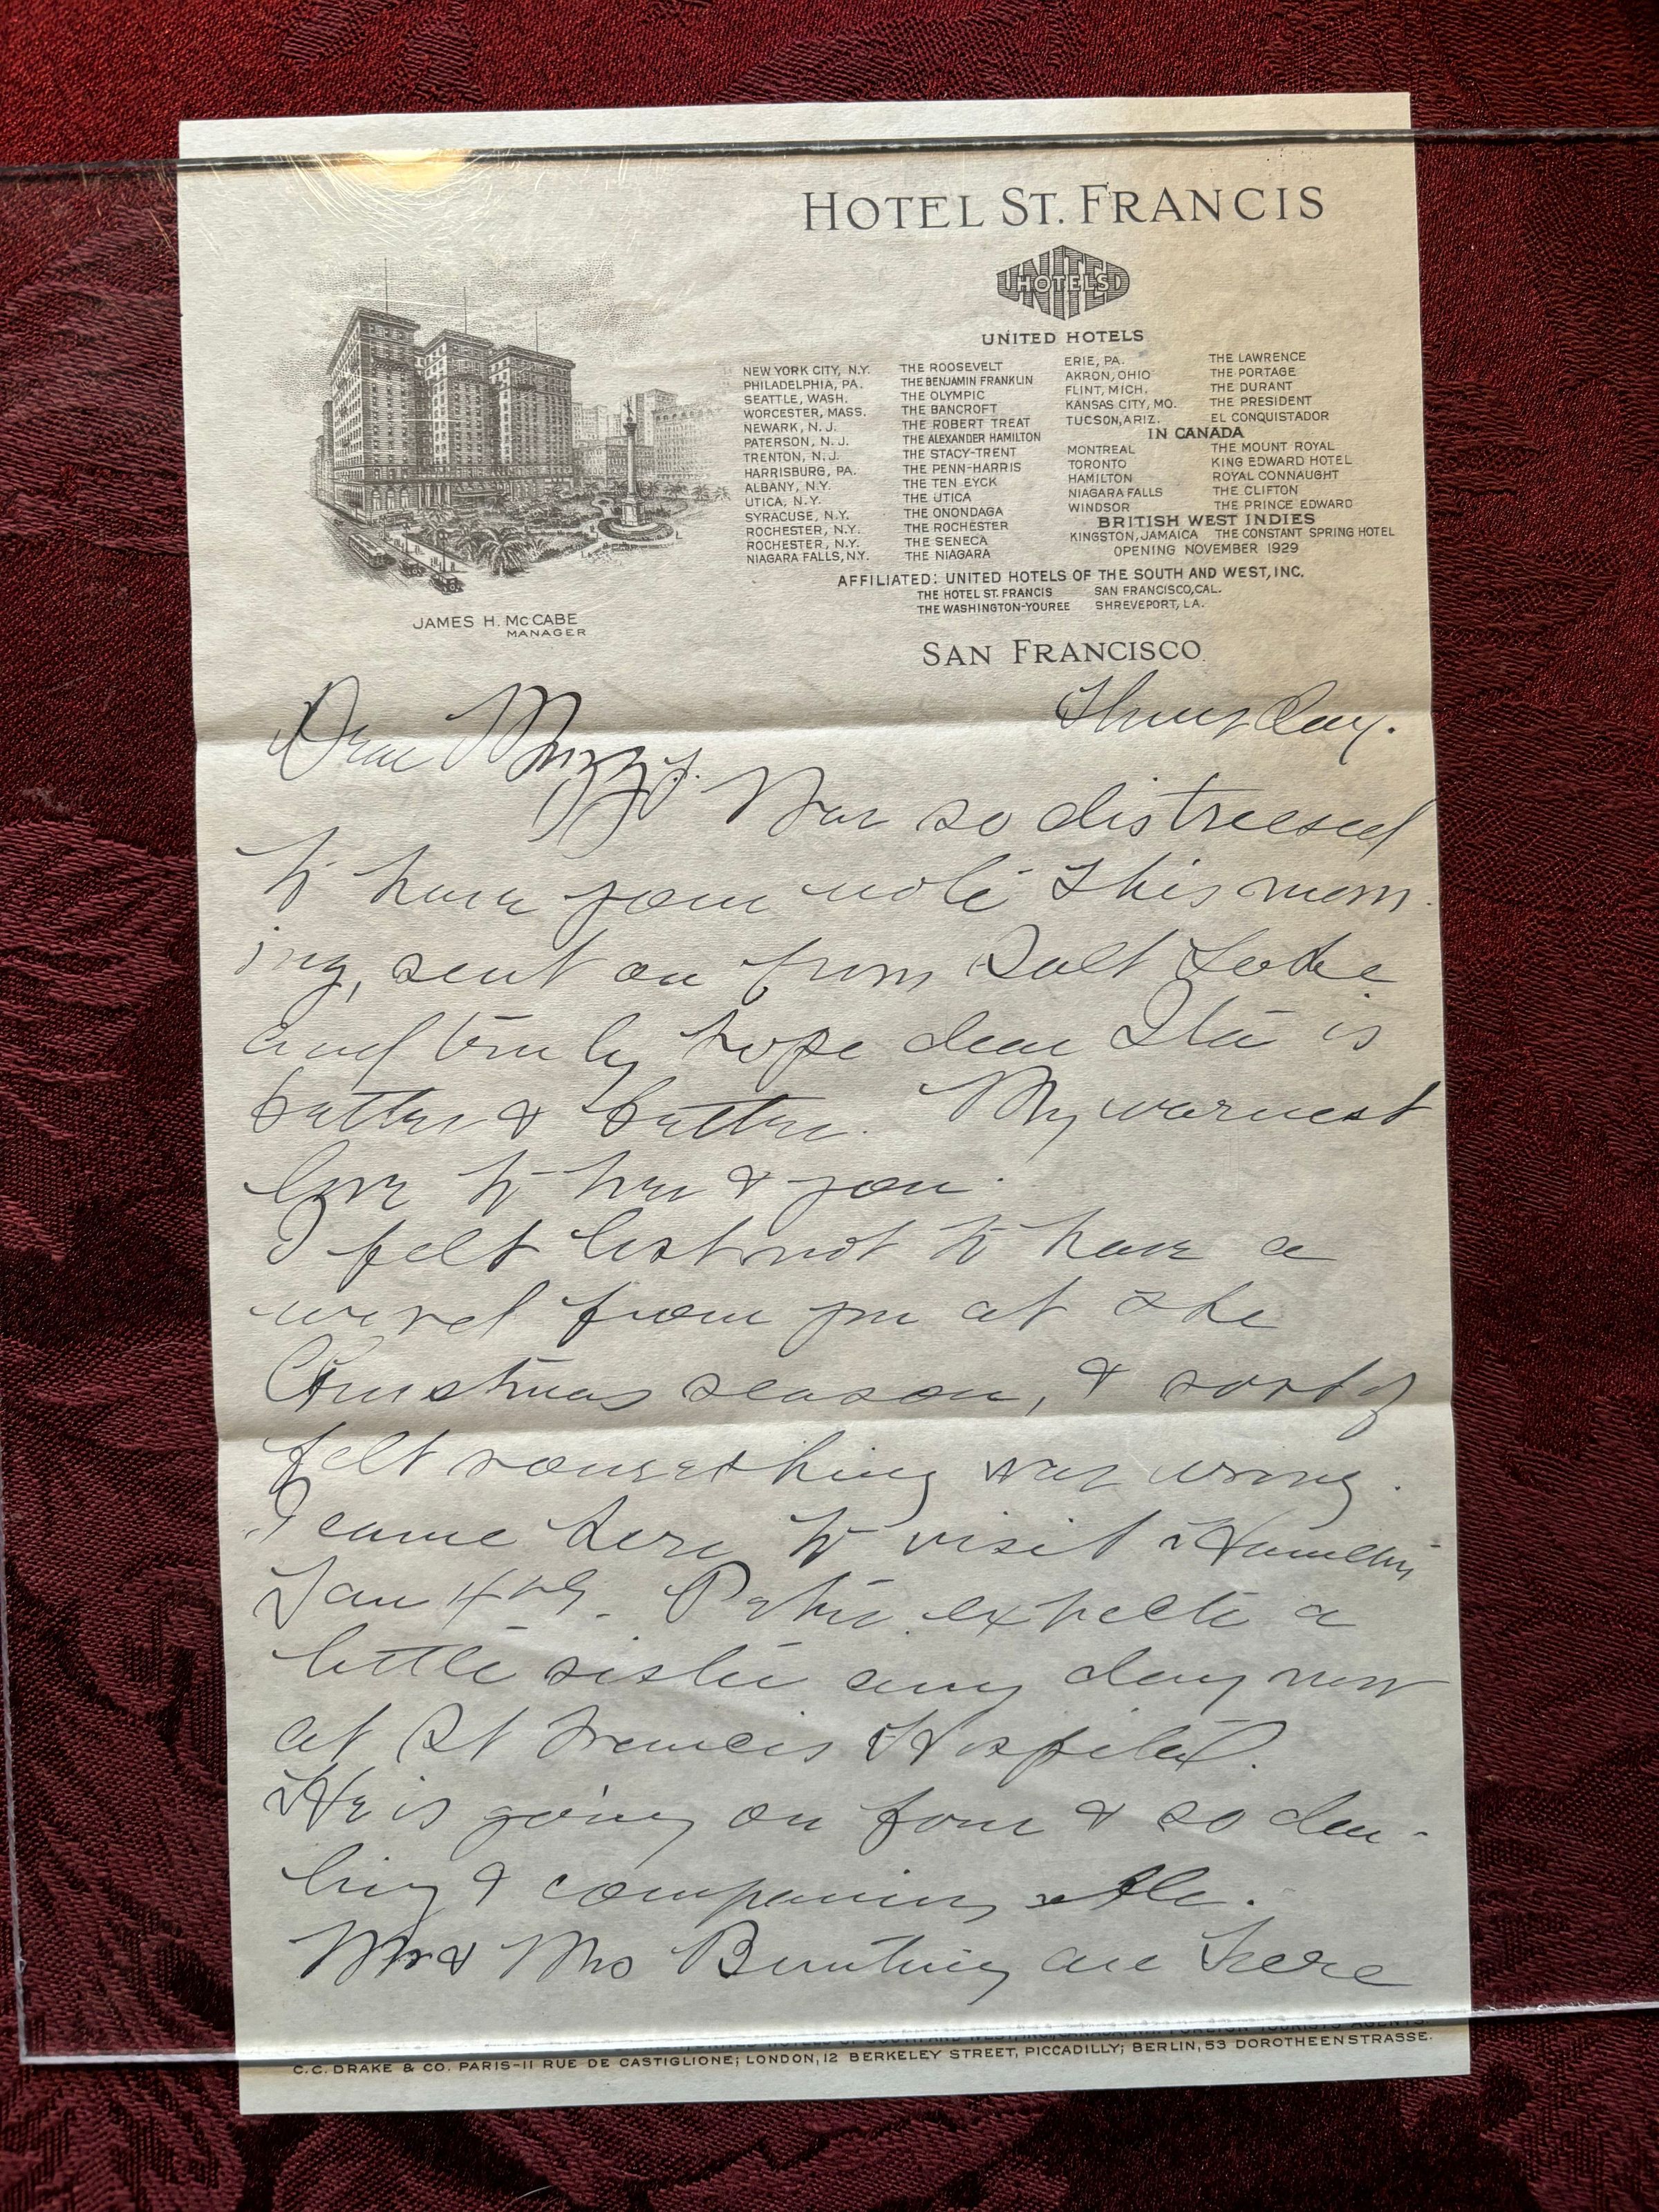 HOTEL ST. FRANCIS
UNITED HOTELS
UNITED HOTELS
NEW YORK CITY, N.Y. THE ROOSEVELT
PHILADELPHIA, PA. THE BENJAMIN FRANKLIN
SEATTLE, WASH. THE OLYMPIC
WORCESTER, MASS. THE BANCROFT
NEWARK, N.J. THE ROBERT TREAT
PATERSON, N.J. THE ALEXANDER HAMILTON
TRENTON, N.J. THE STACY-TRENT
HARRISBURG, PA. THE PENN-HARRIS
ALBANY, N.Y. THE TEN EYCK
UTICA, N.Y. THE UTICA
SYRACUSE, N.Y. THE ONONDAGA
ROCHESTER, N.Y. THE ROCHESTER
ROCHESTER, N.Y. THE SENECA
NIAGARA FALLS, N.Y. THE NIAGARA
ERIE, PA. THE LAWRENCE
AKRON, OHIO THE PORTAGE
FLINT, MICH. THE DURANT
KANSAS CITY, MO. THE PRESIDENT
TUCSON, ARIZ. EL CONQUISTADOR
IN CANADA
MONTREAL THE MOUNT ROYAL
TORONTO KING EDWARD HOTEL
HAMILTON ROYAL CONNAUGHT
NIAGARA FALLS THE CLIFTON
WINDSOR THE PRINCE EDWARD
BRITISH WEST INDIES
KINGSTON, JAMAICA THE CONSTANT SPRING HOTEL
OPENING NOVEMBER 1929
AFFILIATED: UNITED HOTELS OF THE SOUTH AND WEST, INC.
THE HOTEL ST. FRANCIS SAN FRANCISCO, CAL.
THE WASHINGTON-YOUREE SHREVEPORT, LA.
JAMES H. McCABE
MANAGER
SAN FRANCISCO
Thursday.
Dear
Was so distressed
to have your note this morn-
ing, sent on from Salt Lake
and truly hope dear is
better & better. My warmest
love to her & you.
I felt lost not to have a
word from you at the
Christmas season, & sort of
felt something was wrong.
I came here to visit
Jan 4th. expects a
little sister any day now
at St Francis Hospital.
He is going on four & so dar-
ling & companionable.
Mr & Mrs Bunting are here
C. C. DRAKE & CO. PARIS-11 RUE DE CASTIGLIONE; LONDON, 12 BERKELEY STREET, PICCADILLY; BERLIN, 53 DOROTHEENSTRASSE.